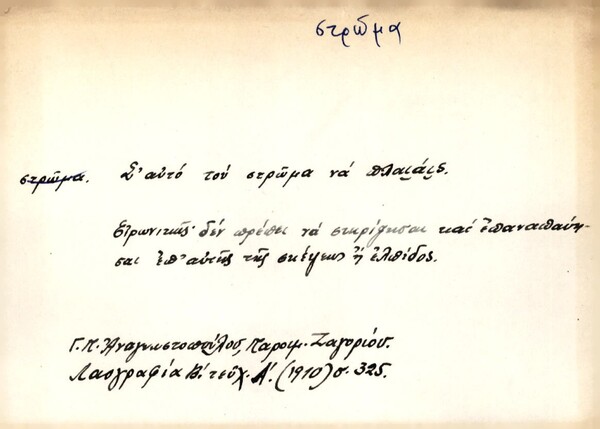 στρῶμα
στρῶμα. Σ' αὐτό τού στρῶμα νά πλαιάις.
Εἰρωνικῆς· δέν πρέπει νά στηρίζησαι καί ἐπαναπαύη-
σαι ἐπ' αὐτῆς τῆς σκέψεως ἤ ἐλπίδος.
Γ. Π. Ἀναγνωστοπούλου, Παροιμ. Ζαγορίου.
Λαογραφία Β'. τεῦχ. Α'. (1910) σ. 325.